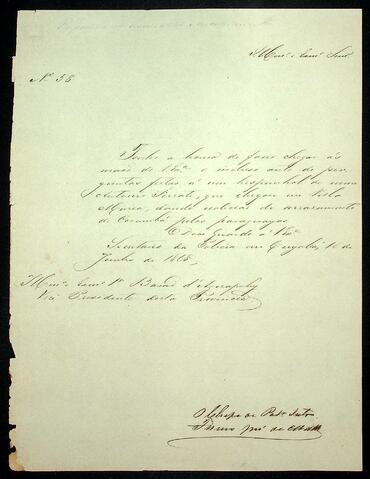 Illmo. e Exmo. Snr.
N.º 58
Tenho a honra de fazer chegar às
mãos de V. Exa. o incluso auto de per
guntas feitas á um hespanhol de nome
Antonio que chegou em
Maria, dando noticias do arrazamento
de Corumbá pelos paraguayos.
Deos Guarde a V. Exa.
Secretaria da Policia em Cuyabá, 10 de
Junho de 1865.
Illmo. Exmo. Sr. Barão d'Aguapehy
Vice Presidente desta Provincia
O Chefe de Pola.